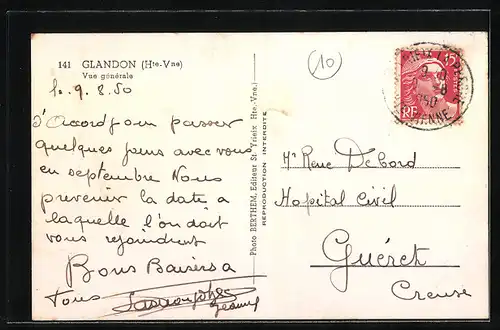 141 GLANDON (Hte-Vne)
Vue générale
le 9.8.50
d'accord pour passer
quelques jours avec vous
en septembre Nous
prevenir la date a
laquelle l'on doit
vous rejoindre
Bons Baisers a
tous
Jeanny
Photo BERTHEM, Editeur St-Yrieix Hte.-Vne.)
REPRODUCTION INTERDITE
10
RF
1950
Mr Rene Debord
Hopital Civil
Guéret
Creuse